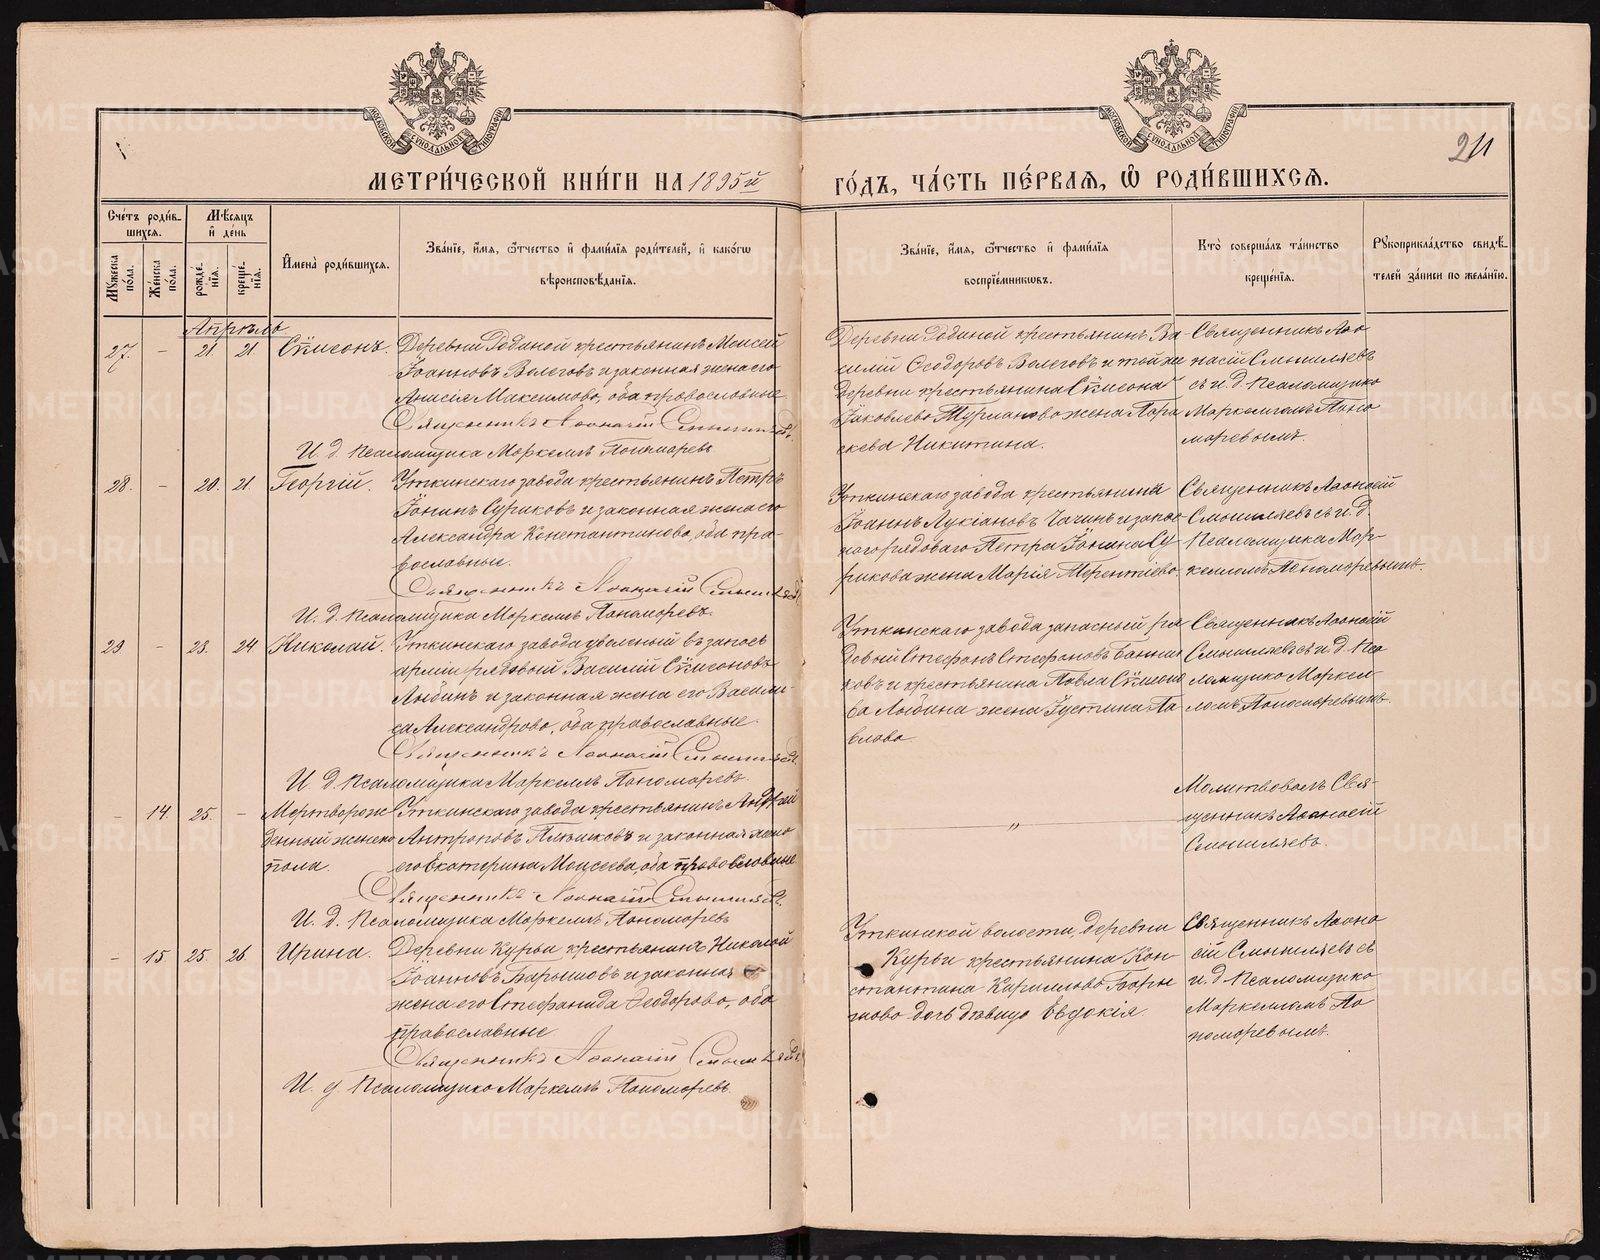 21
МЕТРИ́ЧЕСКОЙ КНИ́ГИ НА 1895й
ГО́ДЪ, ЧА́СТЬ ПЕ́РВАЯ, Ѡ РОДИ́ВШИХСЯ.
Счётъ роди́в-
шихся.
Мѣ́сяцъ
и де́нь
Му́жеска
по́ла.
Же́нска
по́ла.
рожде́-
нїя.
креще́-
нїя.
И҆мена̀ роди́вшихся.
Зва́нїе, и҆́мя, ѻ҆́тчество и҆ фами́лїя роди́телей, и҆ како́гѡ
вѣроисповѣ́данїя.
Зва́нїе, и҆́мя, ѻ҆́тчество и҆ фами́лїя
воспрїе́мниковъ.
Кто̀ соверша́лъ та́инство
креще́нїя.
Рꙋкоприкла́дство свидѣ́-
телей за́писи по жела́нїю.
Апрѣль
27. - 21 21 Сѵмеонъ. Деревни крестьянинъ Моисей
Іоанновъ Волеговъ и законная жена его
Анисія Максимова, оба православные
Священникъ Аѳанасій Смышляевъ
И. д. Псаломщика Маркеллъ Пономаревъ
Деревни крестьянинъ Ва-
силій Ѳеодоровъ Волеговъ и той же
деревни крестьянина Сѵмеона
Іаковлева жена Пара
скева Никитина.
Священникъ Аѳа
насій Смышляевъ
съ и. д. Псаломщика
Маркелломъ Поно
маревымъ.
28. - 20. 21. Георгій. Уткинскаго завода крестьянинъ Петръ
Іонинъ Суриковъ и законная жена его
Александра Константинова, оба пра-
вославные.
Священникъ Аѳанасій Смышляевъ
И. д. Псаломщика Маркеллъ Пономаревъ.
Уткинскаго завода крестьянинъ
Іоаннъ Лукіановъ и запас-
ного рядоваго Петра Іонина Су-
рикова жена Марія
Священникъ Аѳанасій
Смышляевъ съ и. д.
Псаломщика Мар-
келломъ Пономаревымъ.
29 - 23. 24 Николай. Уткинскаго завода уволенный въ запасъ
арміи рядовый Василій Сѵмеоновъ
и законная жена его Васили-
са Александрова, оба православные.
Священникъ Аѳанасій Смышляевъ
И. д. Псаломщика Маркеллъ Пономаревъ.
Уткинскаго завода запасный ря-
довый Стефанъ Стефановъ
ковъ и крестьянина Павла Сѵмеоно
ва жена Іустина Па
влова
Священникъ Аѳанасій
Смышляевъ съ и. д. Пса
ломщика Маркел-
ломъ Пономаревымъ.
- 14. 25. - Мертворож Уткинскаго завода крестьянинъ Андрей
денный женска Антроповъ и законная жена
пола. его Екатерина Моисеева, оба православные
Священникъ Аѳанасій Смышляевъ
И. д. Псаломщика Маркеллъ Пономаревъ
"
Молитвовалъ Свя-
щенникъ Аѳанасій
Смышляевъ.
- 15 25. 26. Ирина. Деревни Курьи крестьянинъ Николай
Іоанновъ Барышовъ и законная
жена его Стефанида Ѳеодорова, оба
православные
Священникъ Аѳанасій Смышляевъ
И. д Псаломщика Маркеллъ Пономаревъ.
Уткинской волости, деревни
Курьи крестьянина Кон
стантина Кириллова
дочь дѣвица Евдокія.
Священникъ Аѳана
сій Смышляевъ съ
и. д. Псаломщика
Маркелломъ По
номаревымъ.